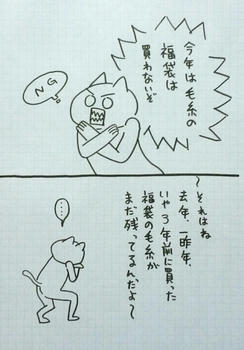 今年は毛糸の
福袋は
買わないぞ
NG
〜それはね
去年、一昨年、
いや3年前に買った
福袋の毛糸が
まだ残ってるんだよ〜
…